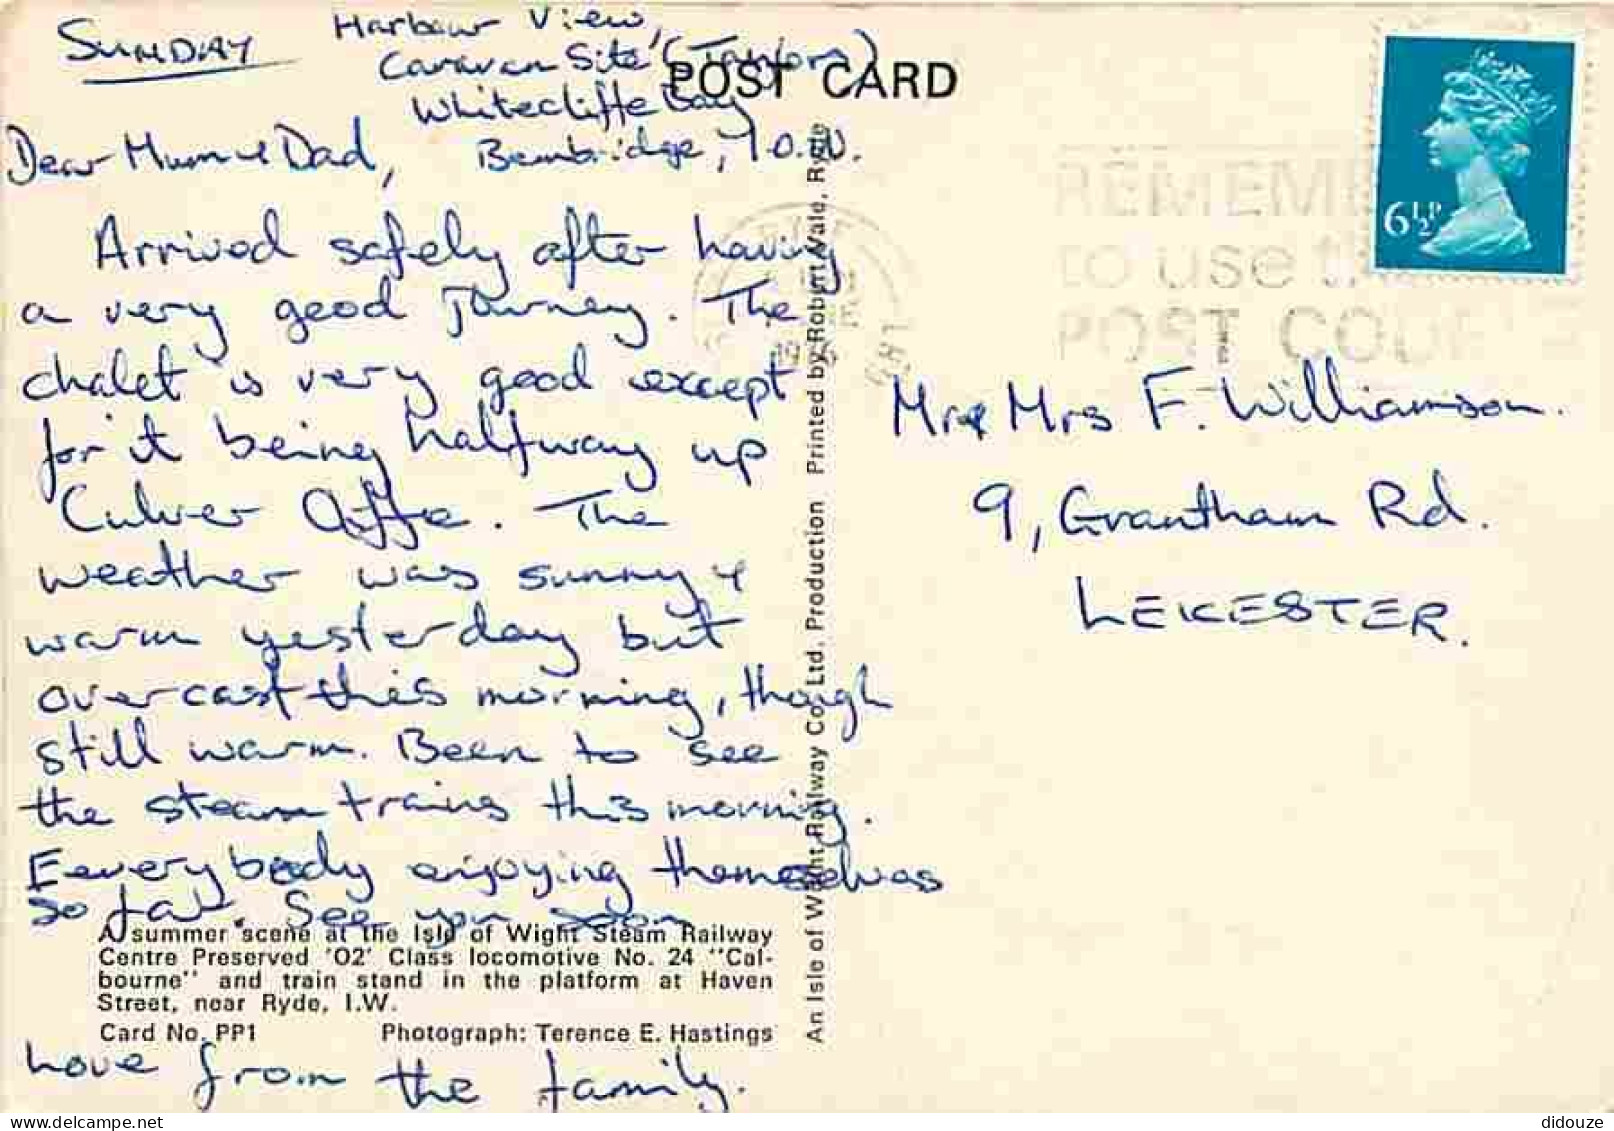 SUNDAY
Harbour View,
Caravan Site
Whitecliffe Bay
Bembridge, I.O.W.
POST CARD
Dear Mum & Dad,
Arrived safely after having
a very good journey. The
chalet is very good except
for it being halfway up
Culver Cliffe. The
weather was sunny &
warm yesterday but
overcast this morning, though
still warm. Been to see
the steam trains this morning.
Eeverybody enjoying themselves
so far. See you soon
A summer scene at the Isle of Wight Steam Railway
Centre Preserved '02' Class locomotive No. 24 "Cal-
bourne" and train stand in the platform at Haven
Street, near Ryde, I.W.
Card No. PP1 Photograph: Terence E. Hastings
Love from the family.
An Isle of Wight Railway Co. Ltd. Production Printed by Robert Vale, Ryde
REMEM
to use t
POST CODE
6½P
Mr & Mrs F. Williamson.
9, Grantham Rd.
LEICESTER.
didouze